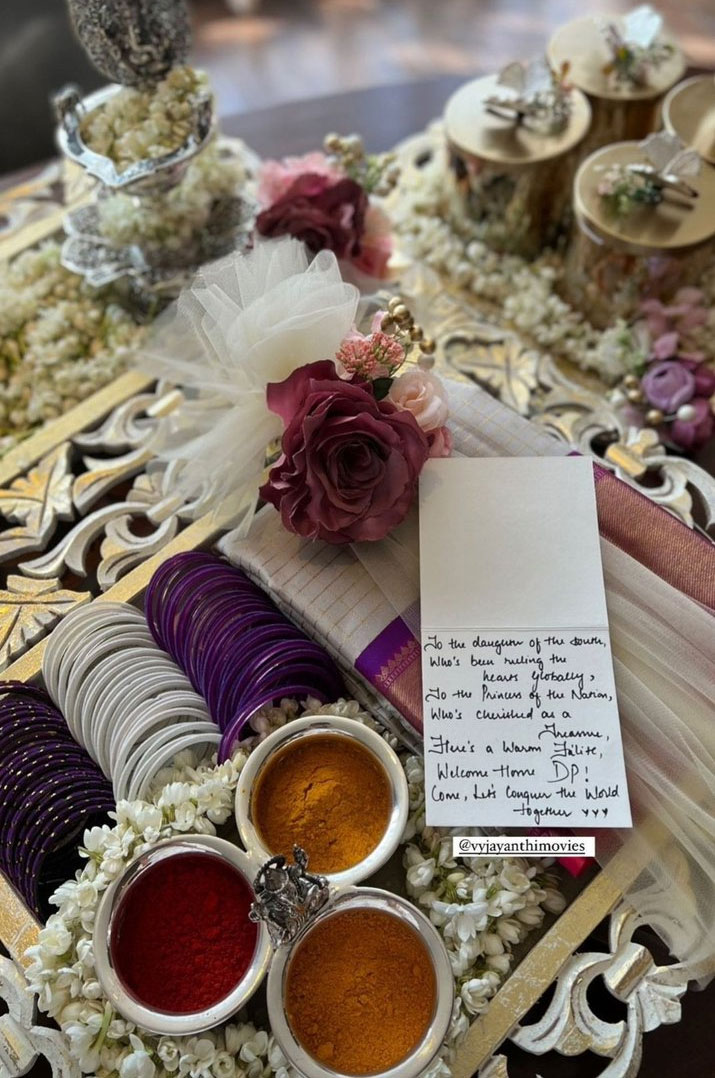 To the daughter of the south,
Who's been ruling the
hearts globally,
To the Princess of the Nation,
Who's cherished as a
Treasure,
Here's a Warm
Welcome Home DP!
Come, Let's Conquer the World
together
@vyjayanthimovies